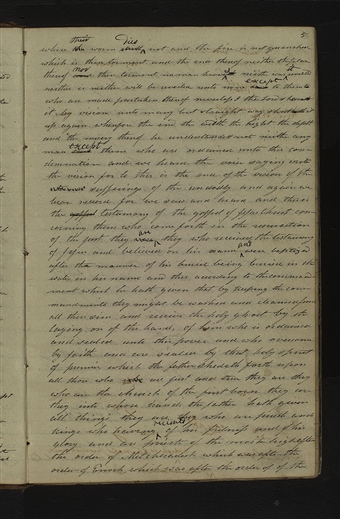 their Dies
where worm not and the fire is not quenched
which is their torment and the end thereof neither the place
thereof nor their torment no man knows neither was revealed
neither is neither will be revealed unto man except to them
who are made partakers thereof nevertheless the Lord
it by vision unto many but straightway shut it
up again wherefore the end the width the height the depth
and the misery thereof he understandeth not neither any
man except them who are ordained unto this con
demnation and we heard the voice saying write
the vision for lo this is the end of the vision of the
sufferings of the ungodly and again we
bear record for we saw and heard and this is
the testimony of the gospel of Christ con
cerning them who come forth in the resurrection
of the just they are they who received the testimony
of Jesus and believed on his name and were baptized
after the manner of his burial being buried in the
water in his name and this according to the command
ment which he hath given that by keeping the com
mandments they might be washed and cleansed from
all their sins and receive the holy ghost by the
laying on of the hands of him who is ordained
and sealed unto this power and who overcome
by faith and are sealed by that holy spirit
of promise which the father sheadeth forth upon
all those who are just and true they are they
who are the church of the first born they are
they into whose hands the father hath given
all things they are they who are priests and
kings who having received of his fulness and of his
glory and are priests of the most high after
the order of Melchisedek which was after the
order of Enoch which was after the order of the